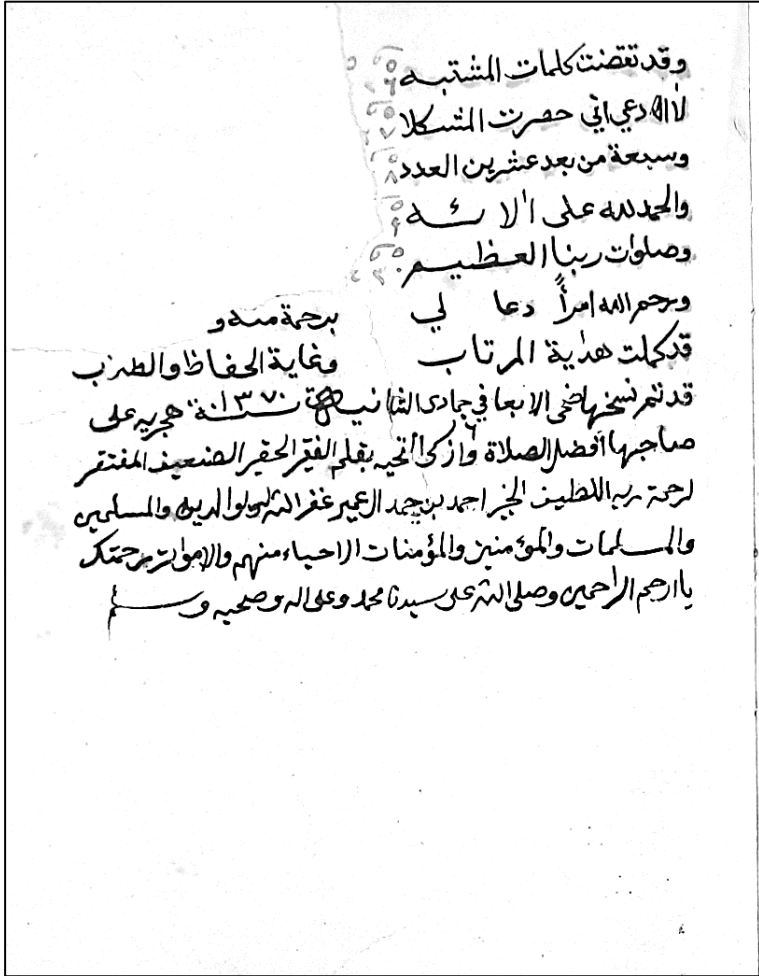 وقد تقضت كلمات المشتبه
لا ادعي اني حصرت المشكلا
وسبعة من بعد عشرين العدد
والحمد لله على الائه
وصلوات ربنا العظيم
ويرحم الله امرأً دعا لي برحمة منه و
قد كملت هداية المرتاب وغاية الحفاظ والطلاب
قد تم نسخها ضحى الاربعا في جمادى الثانية سنة ١٣٧٠ هجريه على
صاحبها افضل الصلاة وأزكى التحيه بقلم الفقير الحقير الضعيف المفتقر
لرحمة ربه اللطيف الخبير احمد بن حمد ال عمير غفر الله له ولوالديه والمسلمين
والمسلمات والمؤمنين والمؤمنات الاحياء منهم والاموات برحمتك
يا ارحم الراحمين وصلى الله على سيدنا محمد وعلى اله وصحبه وسلم